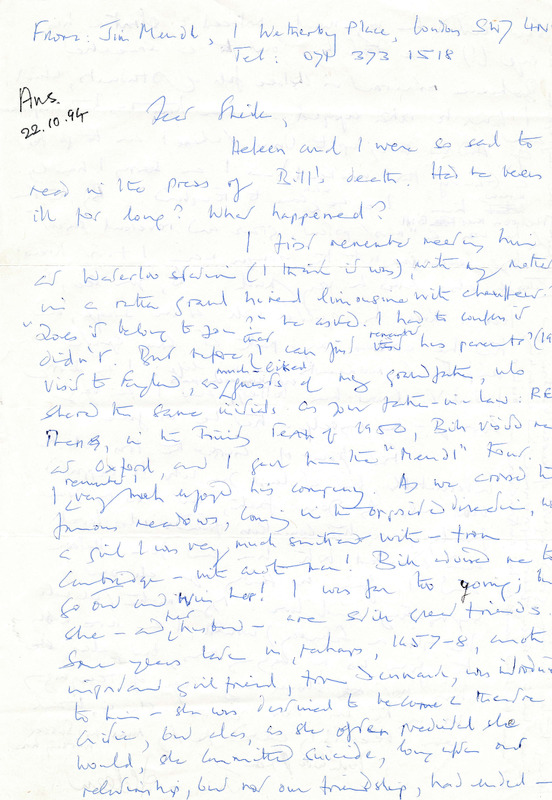 From: Jim Mendl, 1 Wetherby Place, London SW7 4N
Tel: 071 373 1518
Ans.
22.10.94
Dear Sheila,
Heleen and I were so sad to
read in the press of Bill's death. Had he been
ill for long? What happened?
I first remember meeting him
at Waterloo station (I think it was), with my mother
in a rather grand hired limousine with chauffeur.
"Does it belong to you?" he asked. I had to confess it
didn't. But before that I can just remember his parents' (19
visit to England, as much-liked guests of my grandfather, who
shared the same initials as your father-in-law: RE
Then, in the Trinity Term of 1950, Bill visited me
at Oxford, and I gave him the "Mendl" tour.
I remember! very much enjoyed his company. As we crossed th
famous meadows, coming in the opposite direction, w
a girl I was very much smitten with - from
Cambridge - with another man! Bill advised me to
go out and win her! I was far too young; b
she - and her husband - are still great friends.
Some years later in, perhaps, 1957-8, anoth
important girlfriend, from Denmark, was introduc
to him - she was destined to become a theatre
critic, but alas, as she often predicted she
would, she committed suicide, long after our
relationship, but not our friendship, had ended -